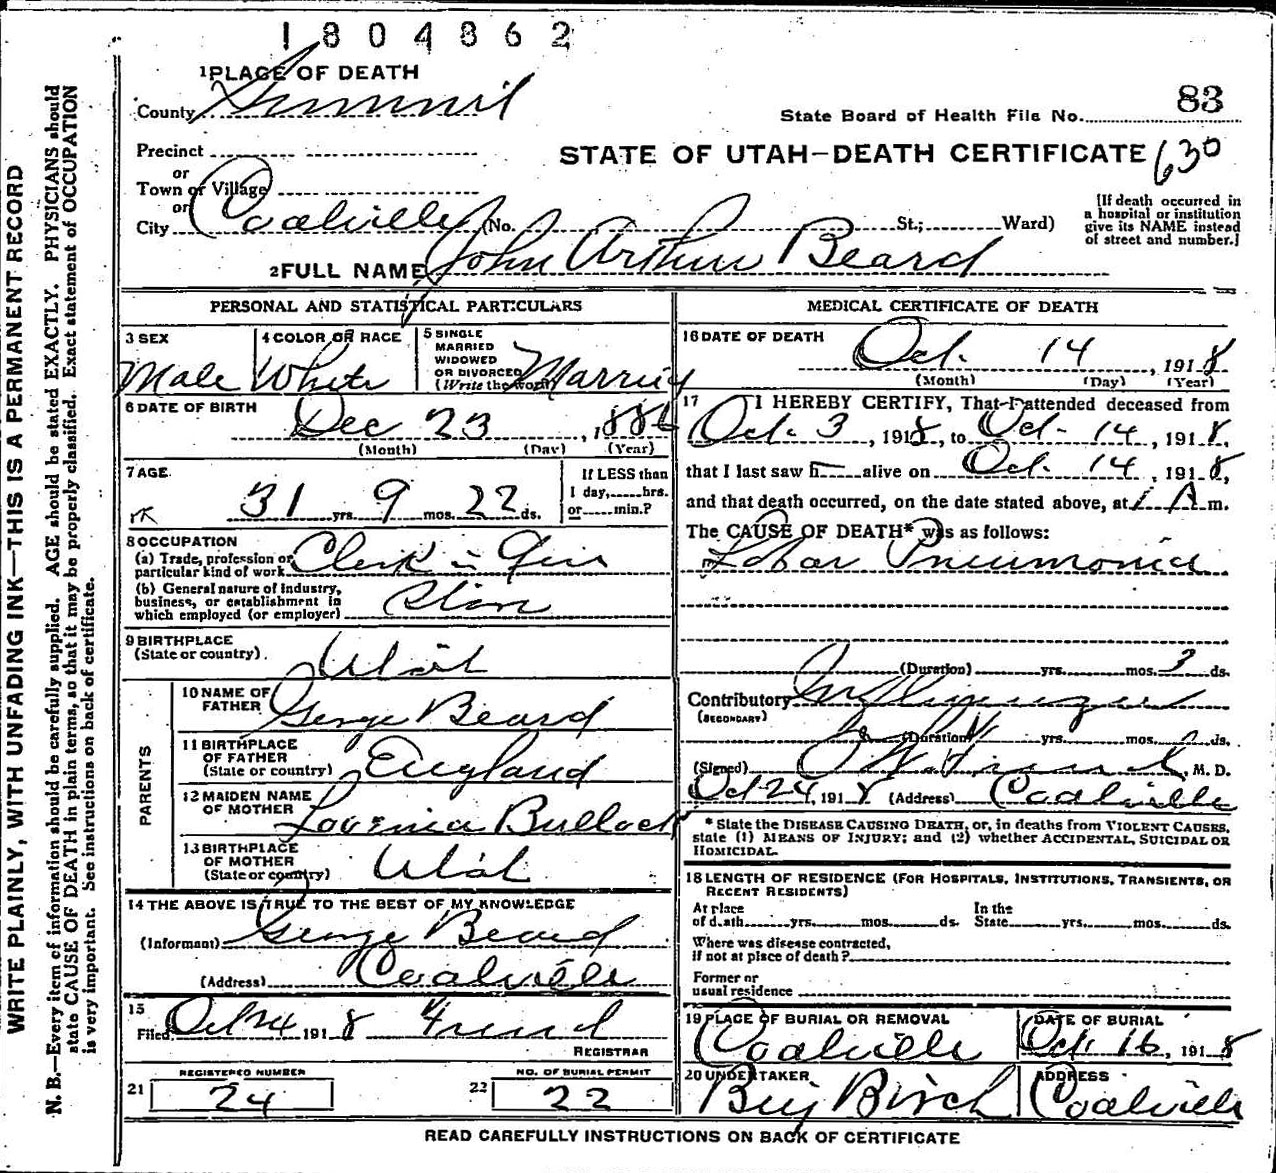 1804862
1 PLACE OF DEATH
County Summit
State Board of Health File No. 83
Precinct
or
Town or Village
or
STATE OF UTAH—DEATH CERTIFICATE 630
City Coalville (No. St.; Ward)
[If death occurred in
a hospital or institution
give its NAME instead
of street and number.]
2 FULL NAME John Arthur Beard
PERSONAL AND STATISTICAL PARTICULARS
3 SEX
Male
4 COLOR OR RACE
White
5 SINGLE
MARRIED
WIDOWED
OR DIVORCED
(Write the word)
Married
6 DATE OF BIRTH
Dec 23, 1886
(Month) (Day) (Year)
7 AGE
31 yrs. 9 mos. 22 ds.
If LESS than
1 day, hrs.
or min.?
8 OCCUPATION
(a) Trade, profession or
particular kind of work Clerk in Gen
(b) General nature of industry,
business, or establishment in
which employed (or employer) Store
9 BIRTHPLACE
(State or country) Utah
PARENTS
10 NAME OF
FATHER George Beard
11 BIRTHPLACE
OF FATHER
(State or country) England
12 MAIDEN NAME
OF MOTHER Lovenia Bullock
13 BIRTHPLACE
OF MOTHER
(State or country) Utah
14 THE ABOVE IS TRUE TO THE BEST OF MY KNOWLEDGE
(Informant) George Beard
(Address) Coalville
15
Filed Oct 24 1918
REGISTRAR
21 REGISTERED NUMBER
24
22 NO. OF BURIAL PERMIT
22
MEDICAL CERTIFICATE OF DEATH
16 DATE OF DEATH
Oct. 14, 1918
(Month) (Day) (Year)
17 I HEREBY CERTIFY, That I attended deceased from
Oct. 3, 1918, to Oct. 14, 1918,
that I last saw h alive on Oct. 14, 1918,
and that death occurred, on the date stated above, at 1 A m.
The CAUSE OF DEATH* was as follows:
Lobar Pneumonia
(Duration) yrs. mos. 3 ds.
Contributory Influenza
(SECONDARY)
(Duration) yrs. mos. ds.
(Signed) M. D.
Oct 24, 1918 (Address) Coalville
* State the DISEASE CAUSING DEATH, or, in deaths from VIOLENT CAUSES,
state (1) MEANS OF INJURY; and (2) whether ACCIDENTAL, SUICIDAL OR
HOMICIDAL.
18 LENGTH OF RESIDENCE (FOR HOSPITALS, INSTITUTIONS, TRANSIENTS, OR
RECENT RESIDENTS)
At place In the
of death yrs. mos. ds. State yrs. mos. ds.
Where was disease contracted,
if not at place of death?
Former or
usual residence
19 PLACE OF BURIAL OR REMOVAL
Coalville
DATE OF BURIAL
Oct. 16, 1918
20 UNDERTAKER
Birch
ADDRESS
Coalville
READ CAREFULLY INSTRUCTIONS ON BACK OF CERTIFICATE
WRITE PLAINLY, WITH UNFADING INK—THIS IS A PERMANENT RECORD
N. B.—Every item of information should be carefully supplied. AGE should be stated EXACTLY. PHYSICIANS should
state CAUSE OF DEATH in plain terms, so that it may be properly classified. Exact statement of OCCUPATION
is very important. See instructions on back of certificate.